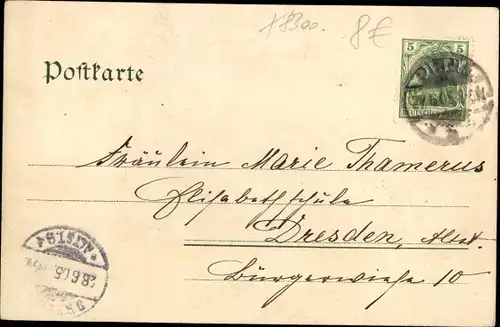 x8300
8€
5 5
Postkarte
Fräulein Marie Thamerus
Elisabethschule
Dresden, Altst.
Bürgerwiese 10
* ALTST 4
28.6.05